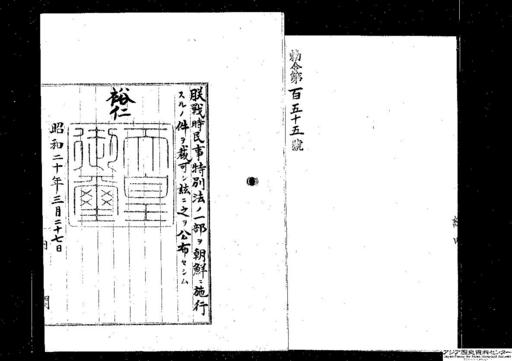 勅令第百五十五號
朕戰時民事特別法ノ一部ヲ朝鮮ニ施行
スルノ件ヲ裁可シ茲ニ之ヲ公布セシム
裕仁
天皇
御璽
昭和二十年三月二十七日
内閣
アジア歴史資料センター